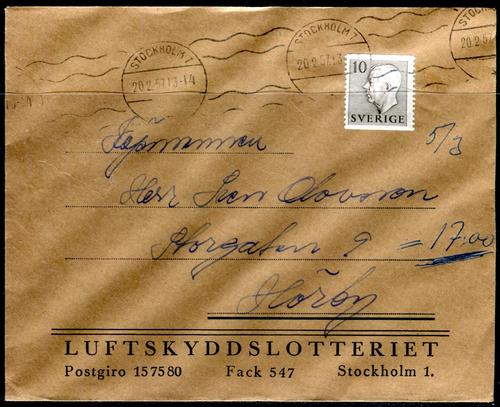 STOCKHOLM 7
20.2.57.13-14
STOCKHOLM 7
20.2.57.13-
STOCKHOLM
20.2.57
10
SVERIGE
Köpmannen
5/3
Herr Sven Olovsson
Storgatan 9
=17:00
Hörby
LUFTSKYDDSLOTTERIET
Postgiro 157580 Fack 547 Stockholm 1.